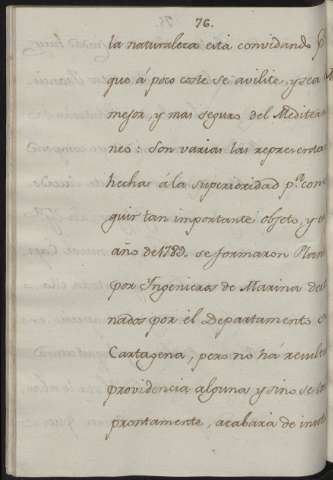 76.
la naturaleza está convidando
que á poco coste se avilite, y sea
mejor, y mas seguro del Mediter
neo: Son varias las representa
hechas á la superioridad p.ª con
guir tan importante objeto, y
año de 1789. se formaron Plan
por Ingenieros de Marina de
nados por el Departamento
Cartagena, pero no há resul
providencia alguna y sino se
prontamente, acabará de inut